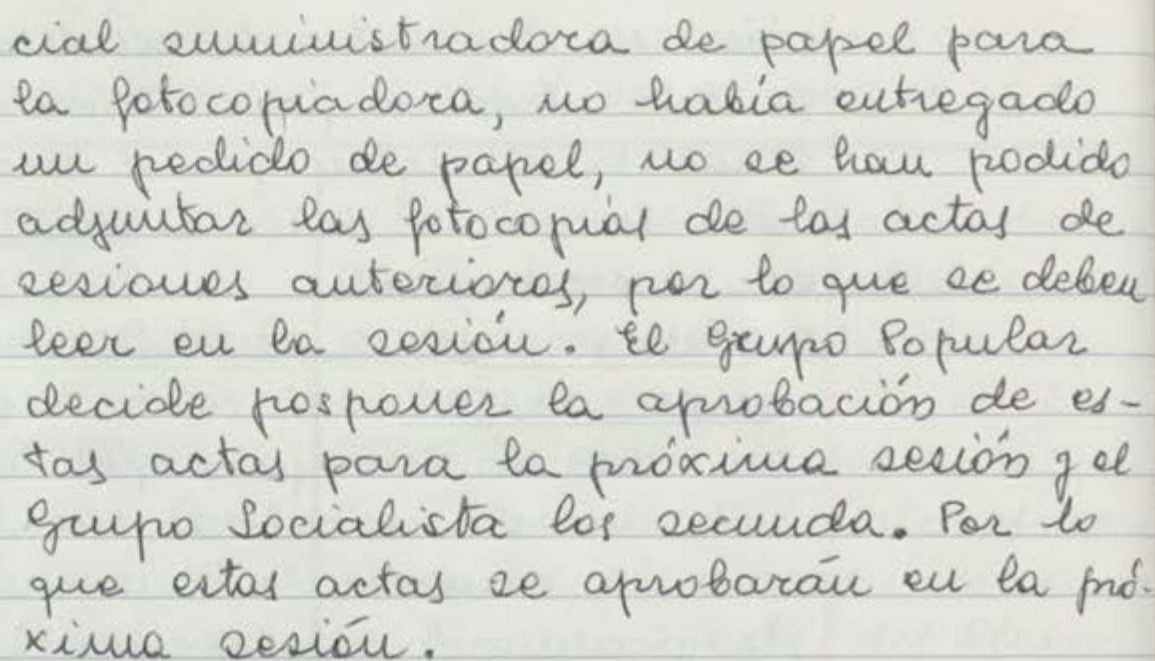 cial suministradora de papel para
la fotocopiadora, no había entregado
un pedido de papel, no se han podido
adjuntar las fotocopias de las actas de
sesiones anteriores, por lo que se deben
leer en la sesión. El Grupo Popular
decide posponer la aprobación de es-
tas actas para la próxima sesión y el
Grupo Socialista los secunda. Por lo
que estas actas se aprobarán en la pró-
xima sesión.